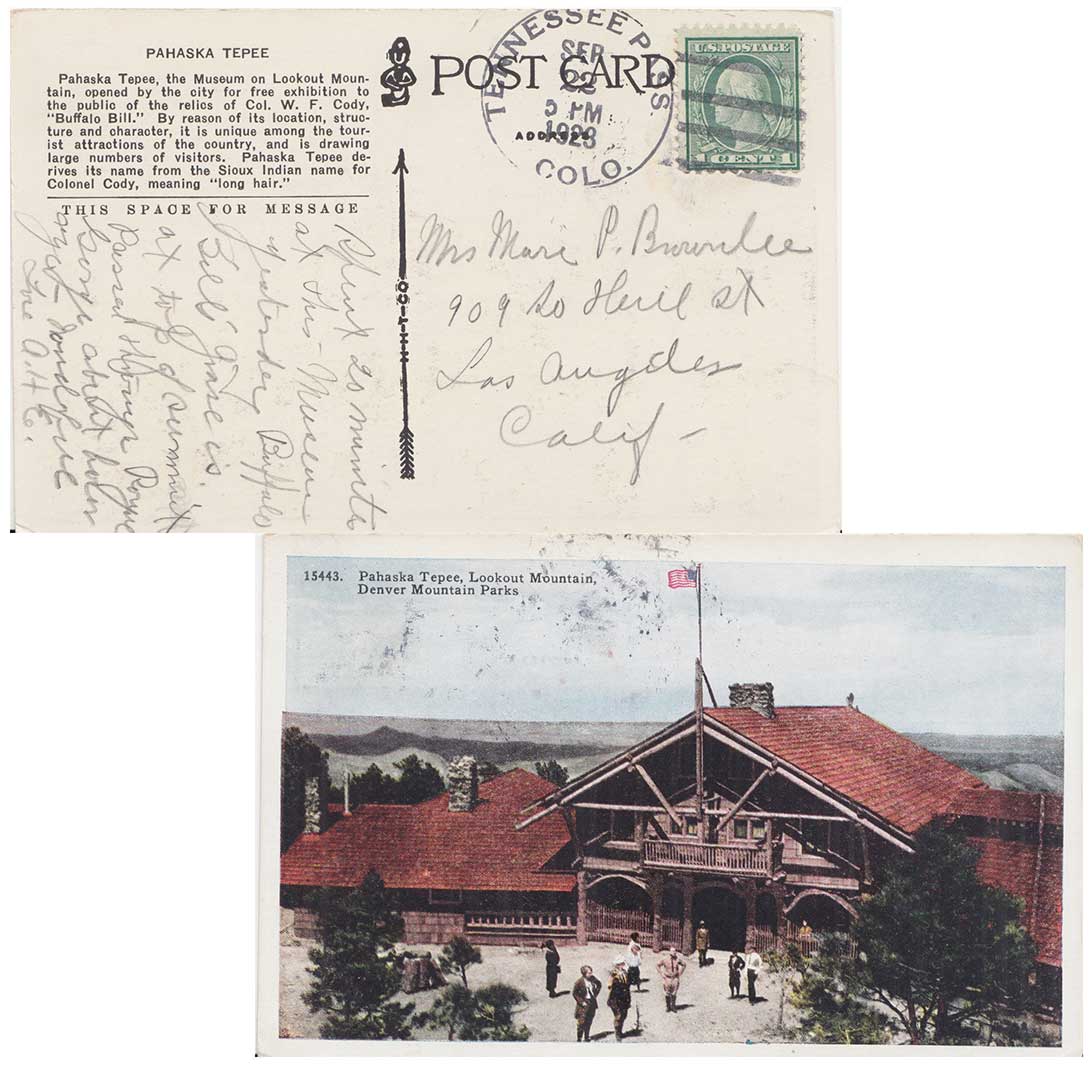 PAHASKA TEPEE
Pahaska Tepee, the Museum on Lookout Moun-
tain, opened by the city for free exhibition to
the public of the relics of Col. W. F. Cody,
"Buffalo Bill." By reason of its location, struc-
ture and character, it is unique among the tour-
ist attractions of the country, and is drawing
large numbers of visitors. Pahaska Tepee de-
rives its name from the Sioux Indian name for
Colonel Cody, meaning "long hair."
THIS SPACE FOR MESSAGE
Spent 20 minutes
at this - Museum
yesterday Buffalo
Bill grave is
at top of summit
Passed through Royal
Gorge about
great - wonderful
A. H. C.
POST CARD
ADDRESS
TENNESSEE PASS
SEP
22
5 PM
1923
COLO.
U.S. POSTAGE
1 CENT 1
Mrs Marie P. Brownlee
909 So Hill st
Los Angeles
Calif -
H-H-T-CO
15443. Pahaska Tepee, Lookout Mountain,
Denver Mountain Parks